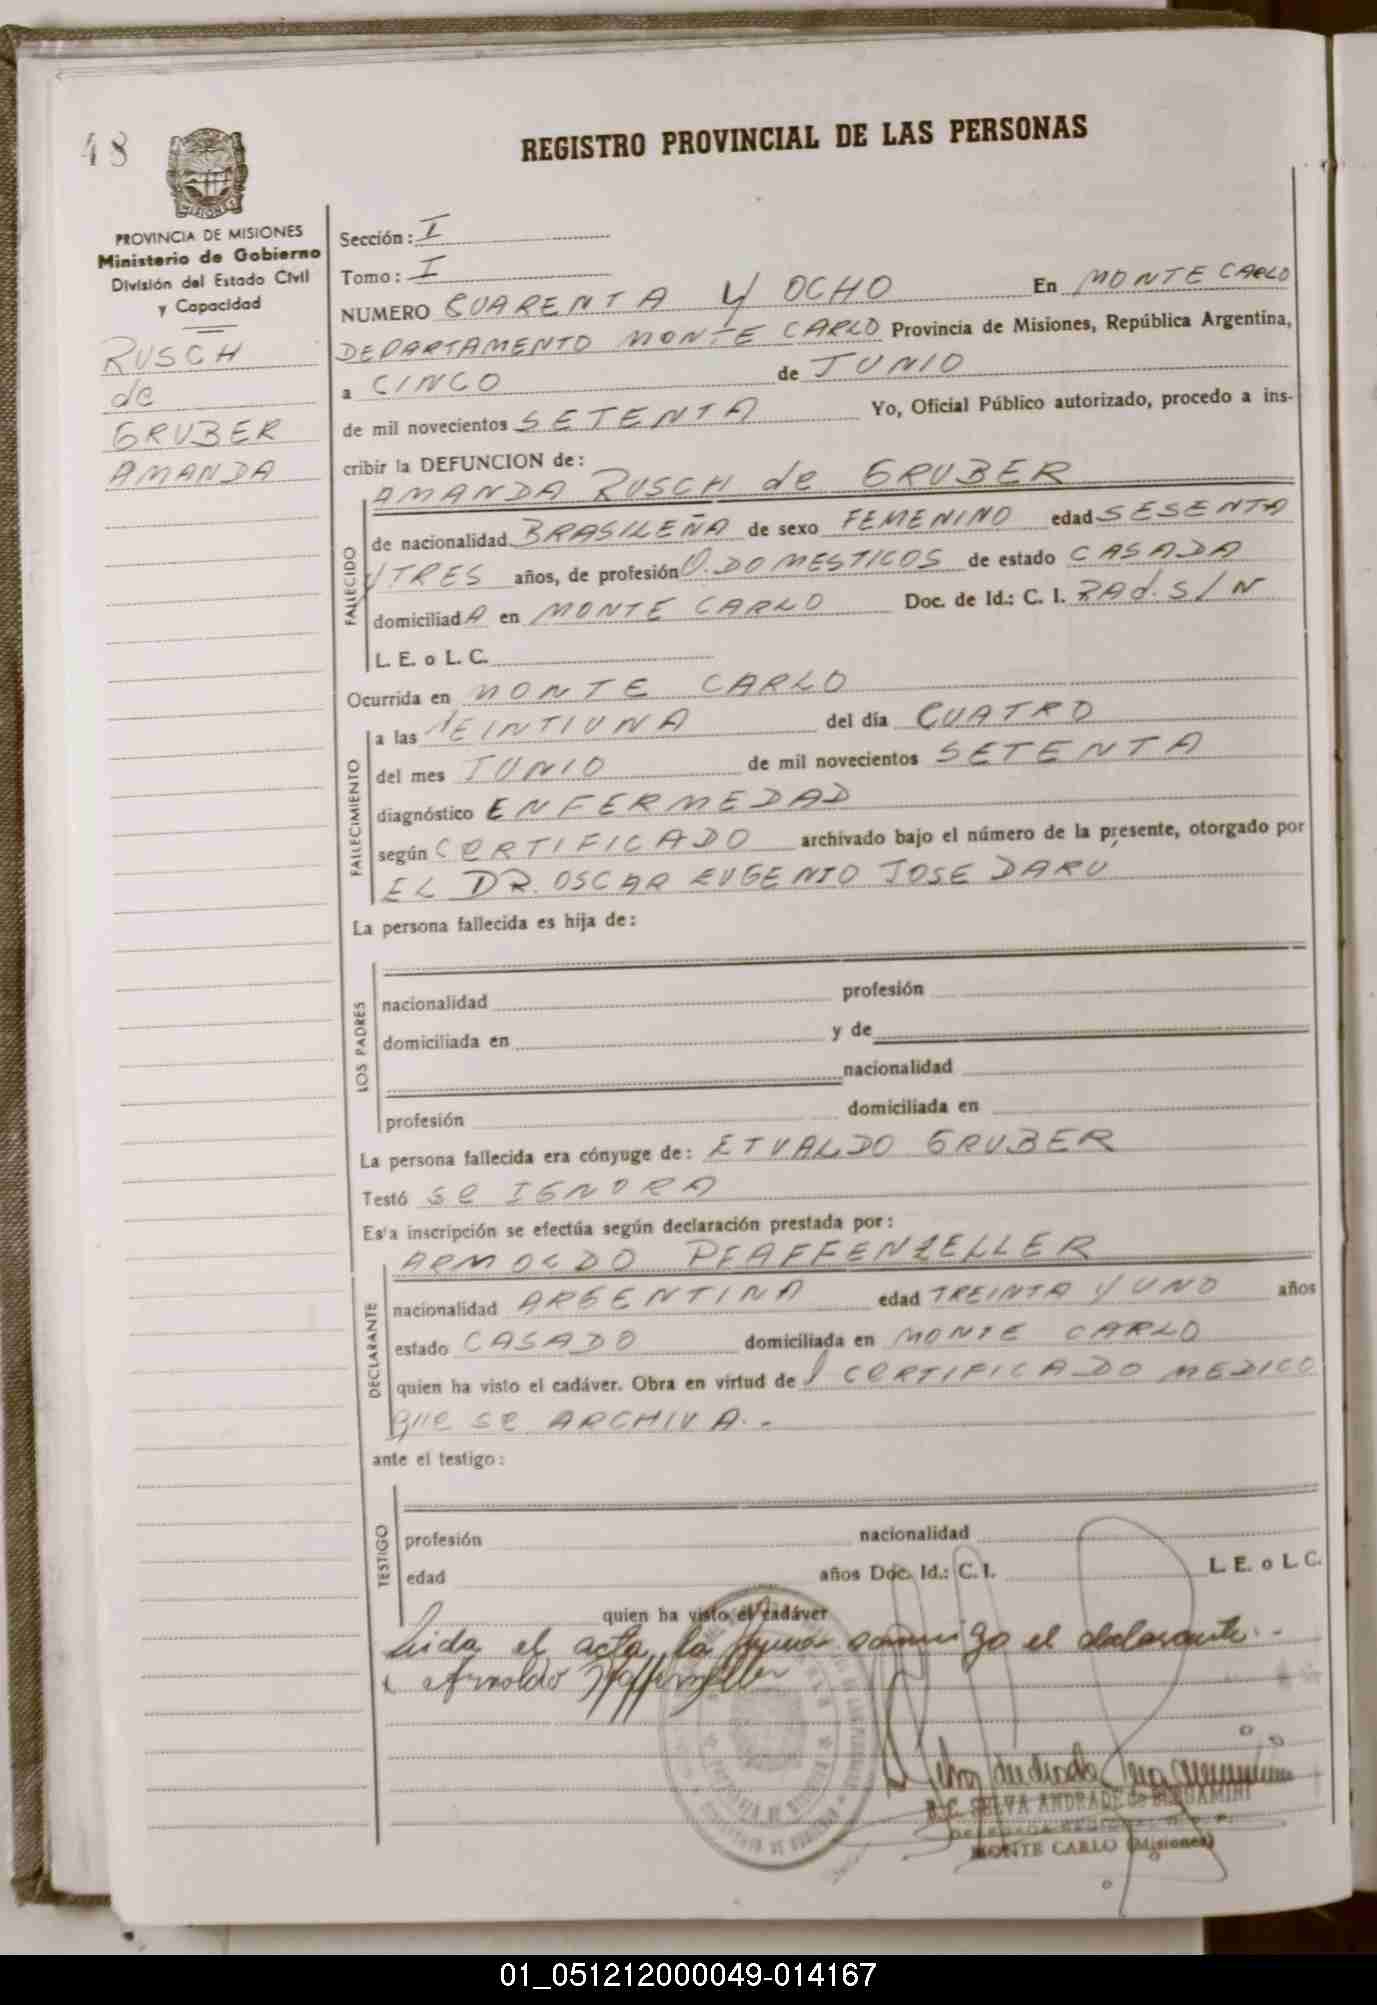 48
REGISTRO PROVINCIAL DE LAS PERSONAS
MISIONES
PROVINCIA DE MISIONES
Ministerio de Gobierno
División del Estado Civil
y Capacidad
RUSCH
de
GRUBER
AMANDA
Sección: I
Tomo: I
NUMERO CUARENTA Y OCHO En MONTE CARLO
DEPARTAMENTO MONTE CARLO Provincia de Misiones, República Argentina,
a CINCO de JUNIO
de mil novecientos SETENTA Yo, Oficial Público autorizado, procedo a ins-
cribir la DEFUNCION de:
AMANDA RUSCH de GRUBER
FALLECIDO
de nacionalidad BRASILEÑA de sexo FEMENINO edad SESENTA
Y TRES años, de profesión Q. DOMESTICOS de estado CASADA
domiciliadA en MONTE CARLO Doc. de Id.: C. I. RAd. S/N
L. E. o L. C.
Ocurrida en MONTE CARLO
FALLECIMIENTO
a las VEINTIUNA del día CUATRO
del mes JUNIO de mil novecientos SETENTA
diagnóstico ENFERMEDAD
según CERTIFICADO archivado bajo el número de la presente, otorgado por
EL DR. OSCAR EUGENIO JOSE DARU
La persona fallecida es hija de:
LOS PADRES
nacionalidad profesión
domiciliada en y de
nacionalidad
profesión domiciliada en
La persona fallecida era cónyuge de: ETVALDO GRUBER
Testó Se IGNORA
Es'a inscripción se efectúa según declaración prestada por:
ARNOLDO PFAFFENZELLER
DECLARANTE
nacionalidad ARGENTINA edad TREINTA Y UNO años
estado CASADO domiciliada en MONTE CARLO
quien ha visto el cadáver. Obra en virtud de l CERTIFICADO MEDICO
que se ARCHIVA.-
ante el testigo:
TESTIGO
profesión nacionalidad
edad años Doc. Id.: C. I. L. E. o L. C.
quien ha visto el cadáver
Leida el acta la firma conmigo el declarante.-
Arnoldo Pfaffenzeller
SELVA ANDRADE de BERGAMINI
MONTE CARLO (Misiones)
01_051212000049-014167